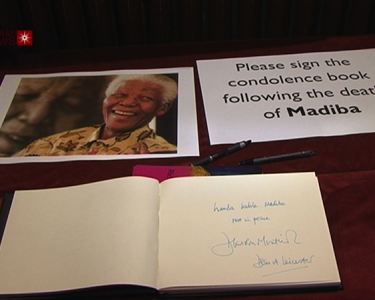 Please sign the
condolence book
following the deat
of Madiba
Hamba kahle Madiba
rest in peace